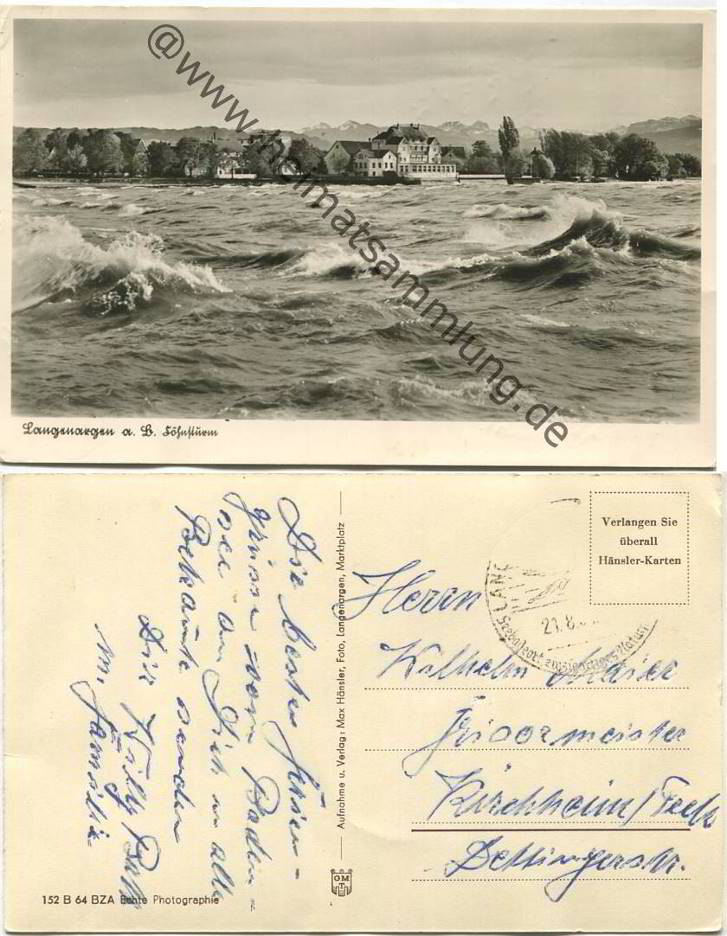 @www.heimatsammlung.de
Langenargen a. B. Föhnsturm
Die besten Ferien-
grüsse vom Boden-
see an Dich u. alle
Bekannte senden
Dir Willy
m. Familie
Aufnahme u. Verlag: Max Hänsler, Foto, Langenargen, Marktplatz
GM
152 B 64 BZA Echte Photographie
Verlangen Sie
überall
Hänsler-Karten
LANG
21.8.
Herrn
Wilhelm Maier
Friseurmeister
Kirchheim/Teck
Dettingerstr.